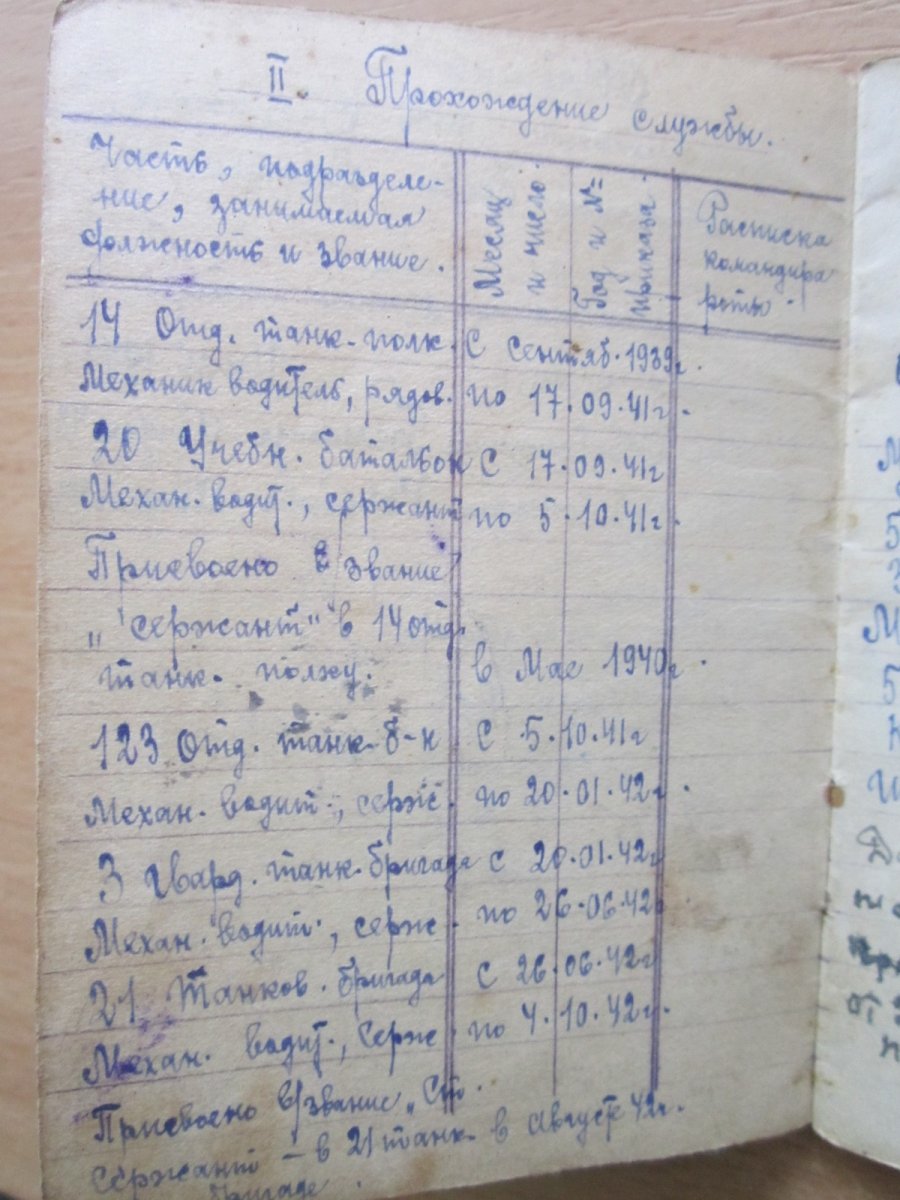 II. Прохождение службы.
Часть, подразделе-
ние, занимаемая
должность и звание.
Месяц
и число.
Год и №=
приказа.
Расписка
командира
роты.
14 Отд. танк. полк. С Сентяб. 1939г.
Механик водитель, рядов. по 17.09.41г.
20 Учебн. батальон С 17.09.41г
Механ. водит., сержант по 5.10.41г.
Присвоено звание
„сержант" в 14 отд.
танк. полку. в Мае 1940г.
123 Отд. танк. б-н С 5.10.41г
Механ. водит., серж. по 20.01.42г.
3 Гвард. танк. бригада С 20.01.42г
Механ. водит., серж. по 26.06.42г.
21 Танков. бригада С 26.06.42г
Механ. водит., серж по 4.10.42г.
Присвоено звание „Ст.
Сержант – в 21 танк. в августе 42г.
бригаде.